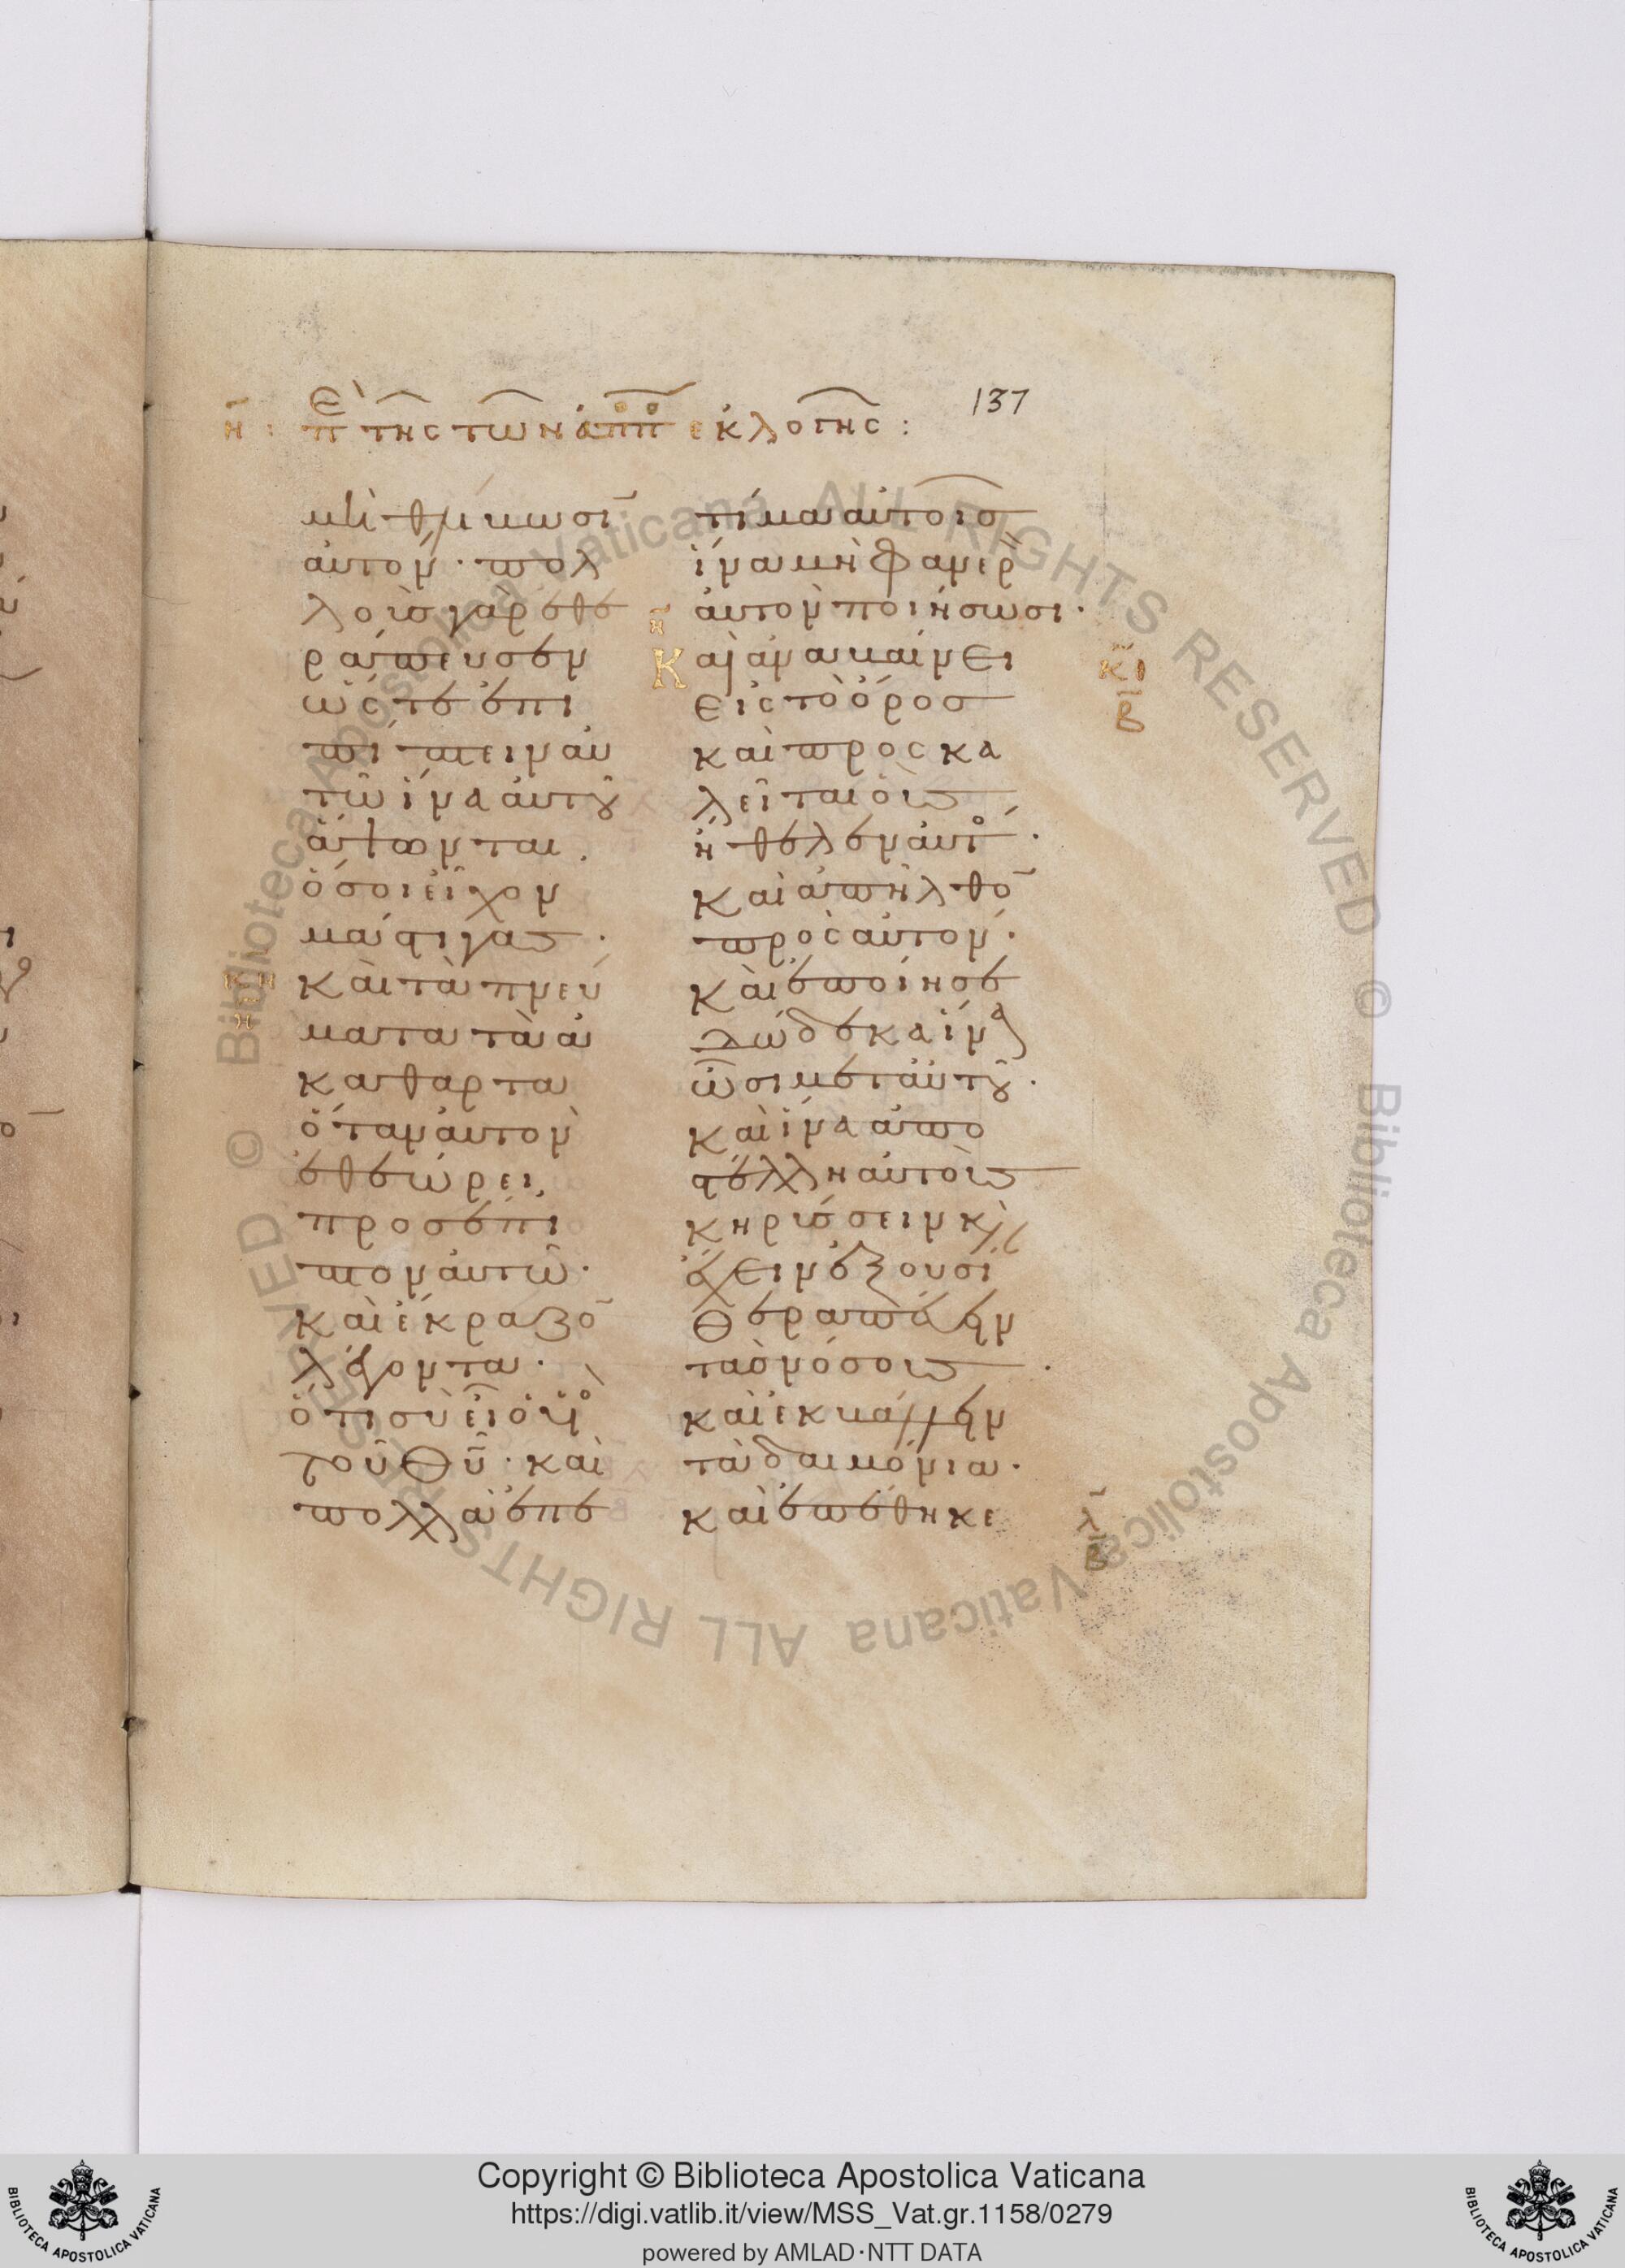 137
η̄ : Π̅ὲ τῆς τῶν ἀπ̅π̅ο̅ο̅ ἐκλογῆς :
μὴ θλίβωσῑ
αὐτόν · πολ
λοὺσ γὰρ ἐθε
ράπευσεν
ὥς τε ἐπι
πίπτειν αὐ
τῶ ἵνα αὐτοῦ
ἅψωνται .
ὅσοι εἶχον
μάστιγας .
Καὶ τὰ πνεύ
ματα τὰ ἀ
κάθαρτα
ὅταν αὐτὸν
ἐθεώρει,
προσέπι
πτον αὐτῶ·
καὶ ἔκραζο̄
λέγοντα .
ὅτι σὺ εἶ ὁ υἱο̅ς
τοῦ Θῡ · καὶ
πολλὰ ἐπε
τίμα αὐτοῖσ
ἵνα μὴ φανερὸ
αὐτὸν ποιήσωσι .
Καὶ ἀναβαίνει
εἰς τὸ ὄρος
καὶ προς κα
λεῖται οὓς
ἤθελεν αὐτὸ .
καὶ ἀπῆλθο̄
πρὸς αὐτόν .
καὶ ἐποίησε
δώδεκα ἵνα
ὦσι μετ αὐτοῦ .
καὶ ἵνα ἀπο
στέλλη αὐτοὺς
κηρύσσειν κὶ
ἔχειν ἐξουσί
Θεραπεύειν
τὰσ νόσους .
καὶ ἐκβάλλειν
τὰ δαιμόνια .
καὶ ἐπέθηκε
κ̄ι
β̄
λ̄
β̄
Copyright © Biblioteca Apostolica Vaticana
https://digi.vatlib.it/view/MSS_Vat.gr.1158/0279
powered by AMLAD·NTT DATA
BIBLIOTECA APOSTOLICA VATICANA
BIBLIOTECA APOSTOLICA VATICANA
© Biblioteca Apostolica Vaticana ALL RIGHTS RESERVED © Biblioteca Apostolica Vaticana ALL RIGHTS RESERVED